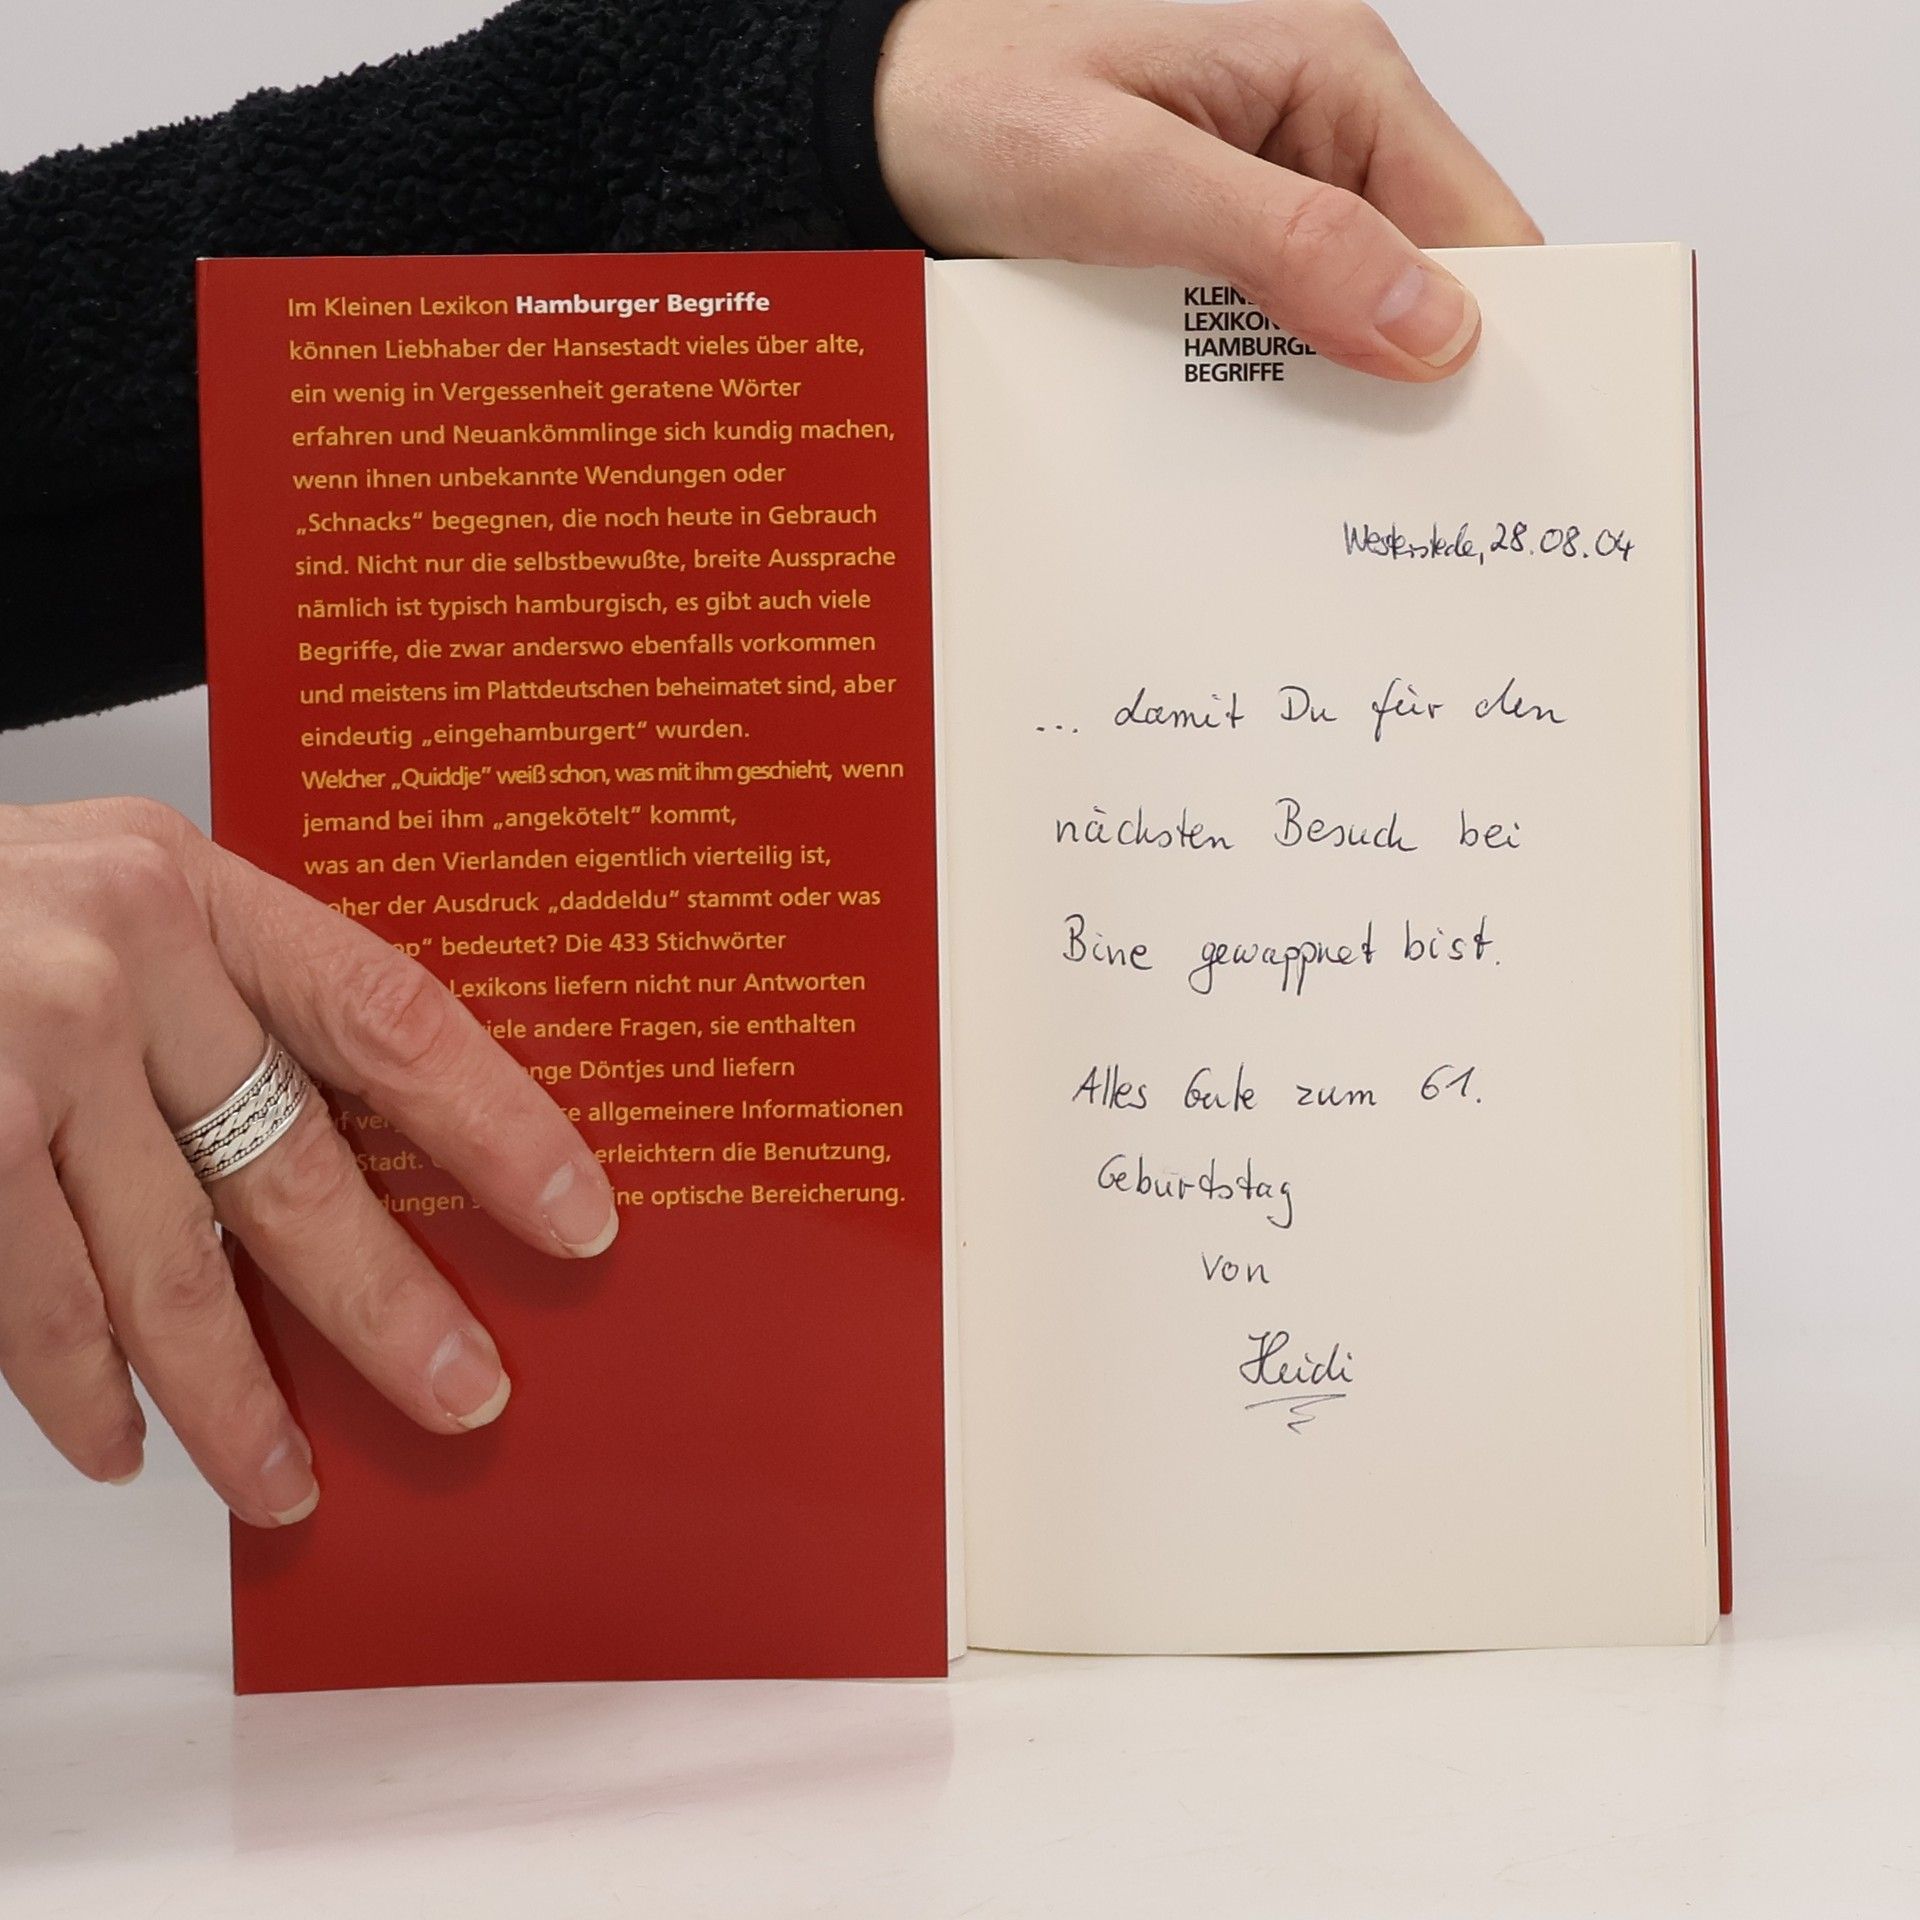 Im Kleinen Lexikon Hamburger Begriffe
können Liebhaber der Hansestadt vieles über alte,
ein wenig in Vergessenheit geratene Wörter
erfahren und Neuankömmlinge sich kundig machen,
wenn ihnen unbekannte Wendungen oder
„Schnacks“ begegnen, die noch heute in Gebrauch
sind. Nicht nur die selbstbewußte, breite Aussprache
nämlich ist typisch hamburgisch, es gibt auch viele
Begriffe, die zwar anderswo ebenfalls vorkommen
und meistens im Plattdeutschen beheimatet sind, aber
eindeutig „eingehamburgert“ wurden.
Welcher „Quiddje“ weiß schon, was mit ihm geschieht, wenn
jemand bei ihm „angekötelt“ kommt,
was an den Vierlanden eigentlich vierteilig ist,
der Ausdruck „daddeldu“ stammt oder was
bedeutet? Die 433 Stichwörter
Lexikons liefern nicht nur Antworten
andere Fragen, sie enthalten
Döntjes und liefern
allgemeinere Informationen
Stadt. erleichtern die Benutzung,
optische Bereicherung.
LEXIKON
BEGRIFFE
Westerstede, 28.08.04
... damit Du für den
nächsten Besuch bei
Bine gewappnet bist.
Alles Gute zum 61.
Geburtstag
von
Heidi